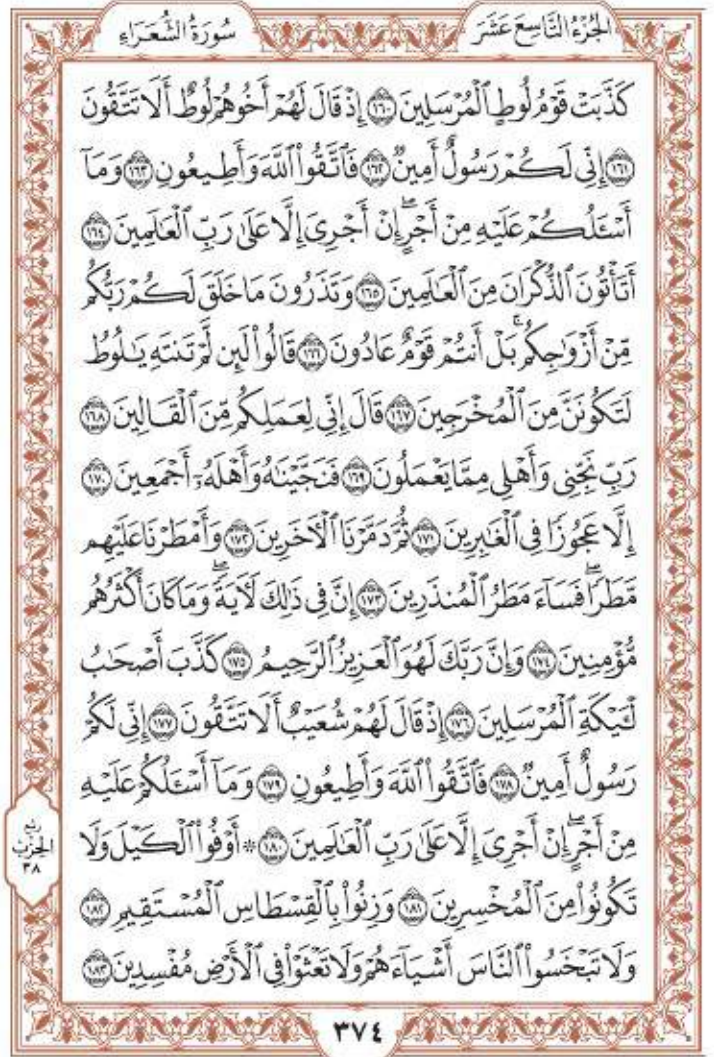 الجُزْءُ التَّاسِعَ عَشَرَ
سُورَةُ الشُّعَرَاءِ
كَذَّبَتۡ قَوۡمُ لُوطٍ ٱلۡمُرۡسَلِينَ ١٦٠ إِذۡ قَالَ لَهُمۡ أَخُوهُمۡ لُوطٌ أَلَا تَتَّقُونَ
١٦١ إِنِّي لَكُمۡ رَسُولٌ أَمِينٞ ١٦٢ فَٱتَّقُواْ ٱللَّهَ وَأَطِيعُونِ ١٦٣ وَمَآ
أَسۡـَٔلُكُمۡ عَلَيۡهِ مِنۡ أَجۡرٍۖ إِنۡ أَجۡرِيَ إِلَّا عَلَىٰ رَبِّ ٱلۡعَٰلَمِينَ ١٦٤
أَتَأۡتُونَ ٱلذُّكۡرَانَ مِنَ ٱلۡعَٰلَمِينَ ١٦٥ وَتَذَرُونَ مَا خَلَقَ لَكُمۡ رَبُّكُم
مِّنۡ أَزۡوَٰجِكُمۚ بَلۡ أَنتُمۡ قَوۡمٌ عَادُونَ ١٦٦ قَالُواْ لَئِن لَّمۡ تَنتَهِ يَٰلُوطُ
لَتَكُونَنَّ مِنَ ٱلۡمُخۡرَجِينَ ١٦٧ قَالَ إِنِّي لِعَمَلِكُم مِّنَ ٱلۡقَالِينَ ١٦٨
رَبِّ نَجِّنِي وَأَهۡلِي مِمَّا يَعۡمَلُونَ ١٦٩ فَنَجَّيۡنَٰهُ وَأَهۡلَهُۥٓ أَجۡمَعِينَ ١٧٠
إِلَّا عَجُوزٗا فِي ٱلۡغَٰبِرِينَ ١٧١ ثُمَّ دَمَّرۡنَا ٱلۡأٓخَرِينَ ١٧٢ وَأَمۡطَرۡنَا عَلَيۡهِم
مَّطَرٗاۖ فَسَآءَ مَطَرُ ٱلۡمُنذَرِينَ ١٧٣ إِنَّ فِي ذَٰلِكَ لَأٓيَةٗۖ وَمَا كَانَ أَكۡثَرُهُم
مُّؤۡمِنِينَ ١٧٤ وَإِنَّ رَبَّكَ لَهُوَ ٱلۡعَزِيزُ ٱلرَّحِيمُ ١٧٥ كَذَّبَ أَصۡحَٰبُ
لۡـَٔيۡكَةِ ٱلۡمُرۡسَلِينَ ١٧٦ إِذۡ قَالَ لَهُمۡ شُعَيۡبٌ أَلَا تَتَّقُونَ ١٧٧ إِنِّي لَكُمۡ
رَسُولٌ أَمِينٞ ١٧٨ فَٱتَّقُواْ ٱللَّهَ وَأَطِيعُونِ ١٧٩ وَمَآ أَسۡـَٔلُكُمۡ عَلَيۡهِ
مِنۡ أَجۡرٍۖ إِنۡ أَجۡرِيَ إِلَّا عَلَىٰ رَبِّ ٱلۡعَٰلَمِينَ ١٨٠ ۞ أَوۡفُواْ ٱلۡكَيۡلَ وَلَا
تَكُونُواْ مِنَ ٱلۡمُخۡسِرِينَ ١٨١ وَزِنُواْ بِٱلۡقِسۡطَاسِ ٱلۡمُسۡتَقِيمِ ١٨٢
وَلَا تَبۡخَسُواْ ٱلنَّاسَ أَشۡيَآءَهُمۡ وَلَا تَعۡثَوۡاْ فِي ٱلۡأَرۡضِ مُفۡسِدِينَ ١٨٣
ربع
الحزب
٣٨
٣٧٤